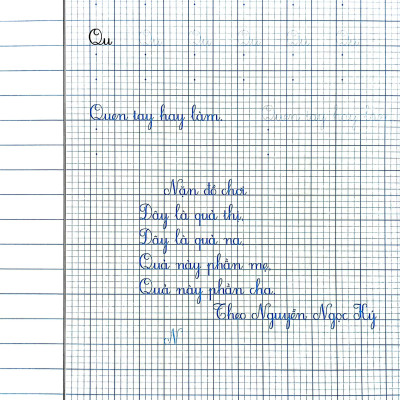 Qu Qu Qu Qu Qu Qu
Quen tay hay làm. Quen tay hay làm.
Nặn đồ chơi
Đây là quả thị,
Đây là quả na,
Quả này phần mẹ,
Quả này phần cha.
Theo Nguyễn Ngọc Ký
N